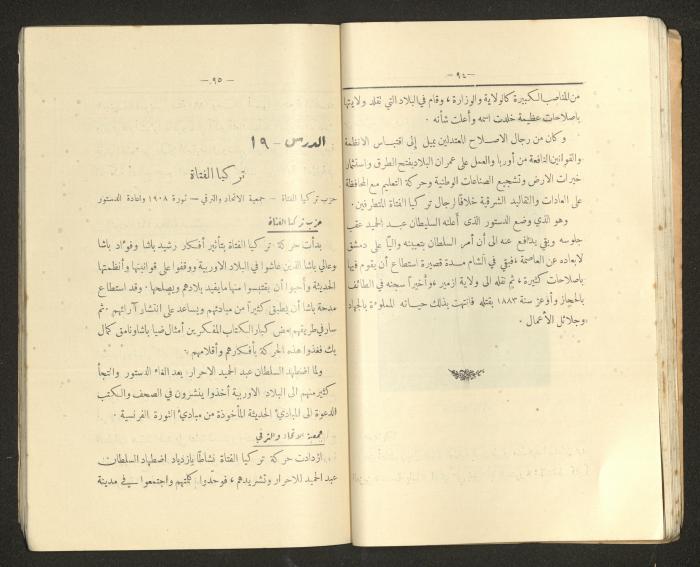 — ٩٤ —
من المناصب الكبيرة كالولاية والوزارة ، وقام في البلاد التي تقلد ولايتها
باصلاحات عظيمة خلدت اسمه وأعلت شأنه .
وكان من رجال الاصلاح المعتدلين يميل إلى اقتباس الانظمة
والقوانين النافعة من أوربا والعمل على عمران البلاد بفتح الطرق واستثمار
خيرات الارض وتشجيع الصناعات الوطنية وحركة التعليم مع المحافظة
على العادات والتقاليد الشرقية خلافا لرجال تركيا الفتاة المتطرفين .
وهو الذي وضع الدستور الذي أعلنه السلطان عبد الحميد عقب
جلوسه وبقي يدافع عنه الى ان أمر السلطان بتعيينه واليا على دمشق
لابعاده عن العاصمة ، فبقي في الشام مدة قصيرة استطاع أن يقوم فيها
باصلاحات كثيرة ، ثم نقله الى ولاية ازمير ، وأخيراً سجنه في الطائف
بالحجاز وأوعز سنة ١٨٨٣ بقتله فانتهت بذلك حياته المملوءة بالجهاد
وجلائل الأعمال .
— ٩٥ —
الدرس - ١٩
تركيا الفتاة
حزب تركيا الفتاة — جمعية الاتحاد والترقي — ثورة ١٩٠٨ واعادة الدستور
حزب تركيا الفتاة
بدأت حركة تركيا الفتاة بتأثير أفكار رشيد باشا وفوءاد باشا
وعالي باشا الذين عاشوا في البلاد الاوربية ووقفوا على قوانينها وأنظمتها
الحديثة وأحبوا أن يقتبسوا منها ما يفيد بلادهم ويصلحها . وقد استطاع
مدحة باشا أن يطبق كثيراً من مبادئهم ويساعد على انتشار آرائهم . ثم
سار في طريقهم بعض كبار الكتاب المفكرين أمثال ضيا باشا ونامق كمال
بك فغذوا هذه الحركة بأفكارهم وأقلامهم .
ولما اضطهد السلطان عبد الحميد الاحرار بعد الغاء الدستور والتجأ
كثير منهم الى البلاد الاوربية أخذوا ينشرون في الصحف والكتب
الدعوة الى المبادئ الحديثة المأخوذة من مبادئ الثورة الفرنسية .
جمعية الاتحاد والترقي
ازدادت حركة تركيا الفتاة نشاطا بازدياد اضطهاد السلطان
عبد الحميد للاحرار وتشريدهم ، فوحدوا كلمتهم واجتمعوا في مدينة